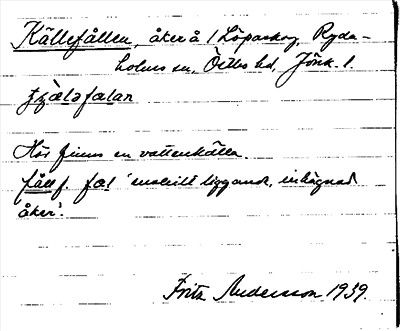 Källefållen, åker å Löparskog, Ryda-
holms sn, Östbo hd, Jönk. l.
Här finns en vattenkälla.
fåll f. fal 'enskilt liggande, inhägnad
åker'.
Fritz Andersson 1939.